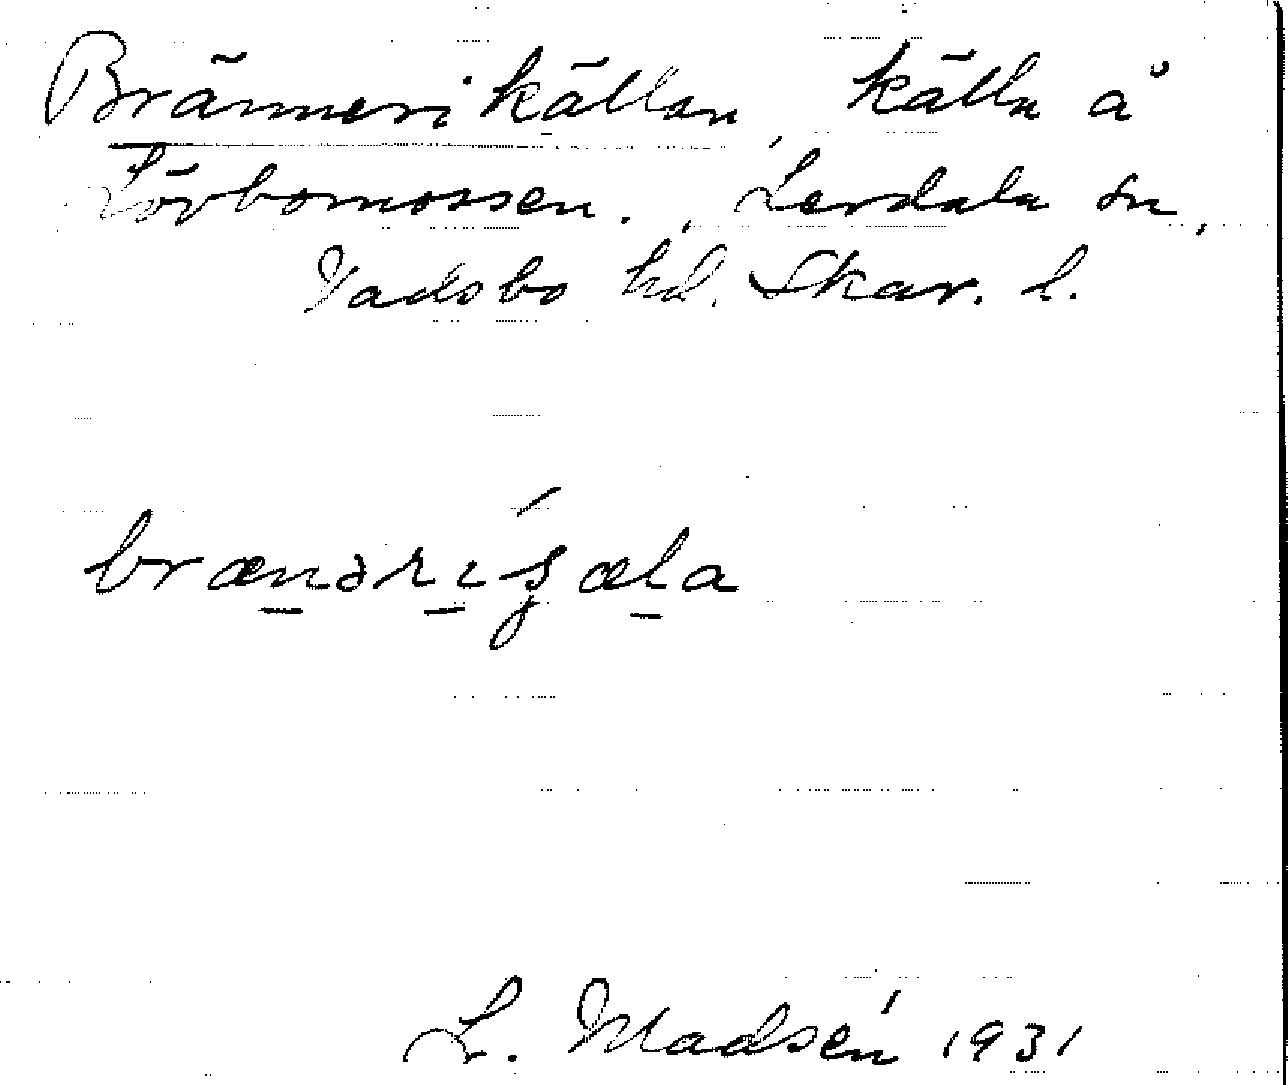 Brännerikällan, källa å
Törbomossen. Lerdala sn,
Vadsbo hd. Skar. l.
brænəriʂæla
L. Madsén 1931